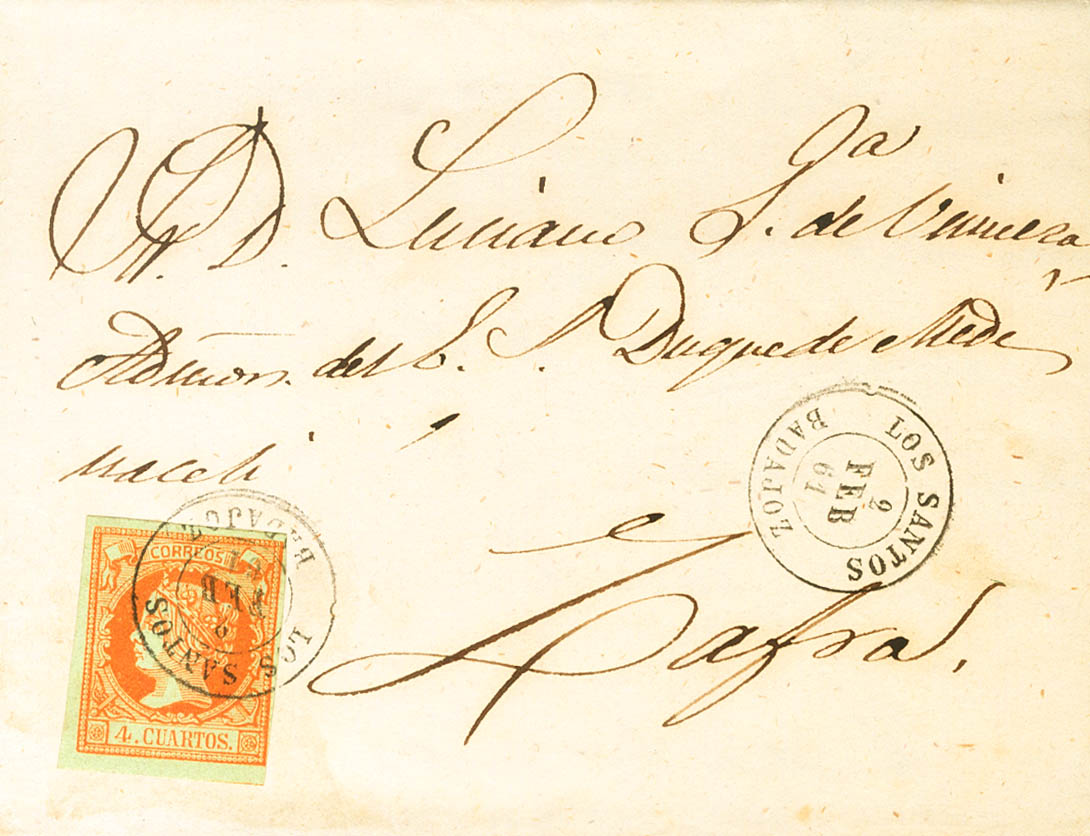 S. D. Luciano G.ª de Vinuesa
Admor. del E. S. Duque de Medi
naceli
Zafra.
LOS SANTOS
BADAJOZ
2
FEB
61
CORREOS
4. CUARTOS.
LOS SANTOS
BADAJOZ
2
FEB
61